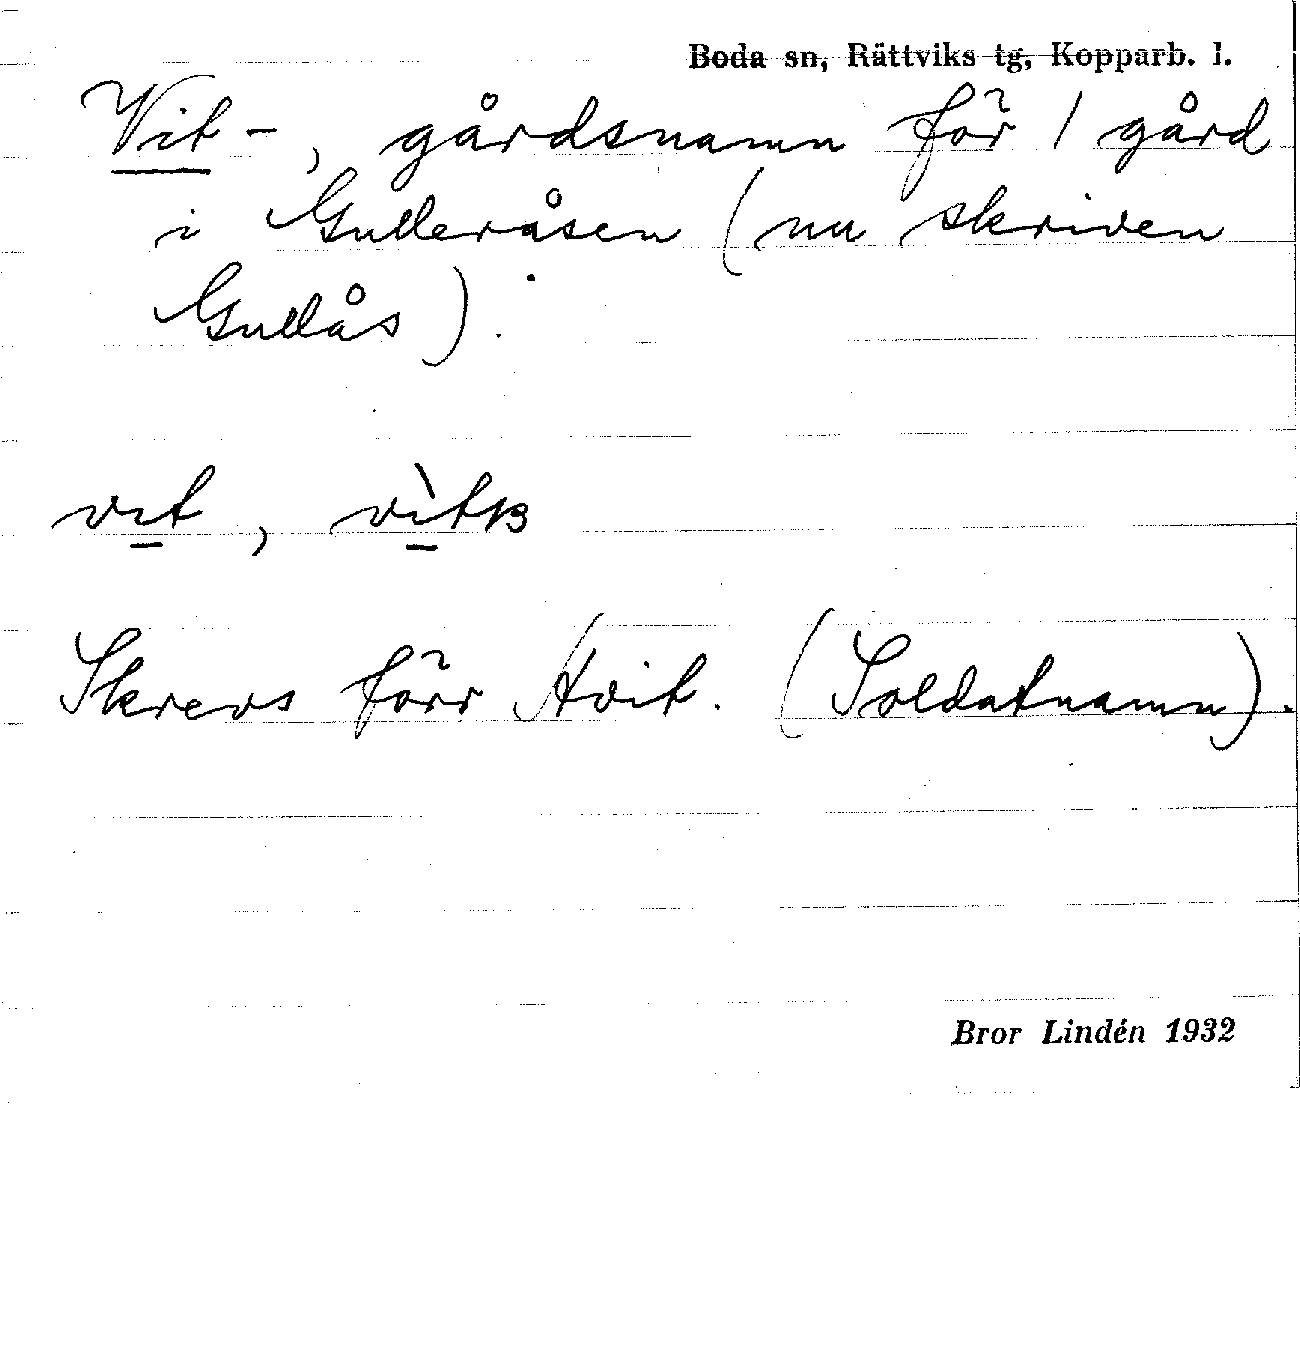 Boda sn, Rättviks tg, Kopparb. l.
Vit-, gårdsnamn för 1 gård
i Gulleråsen (nu skriven
Gullås).
vit, vìtɴ
Skrevs förr Hvit. (Soldatnamn).
Bror Lindén 1932